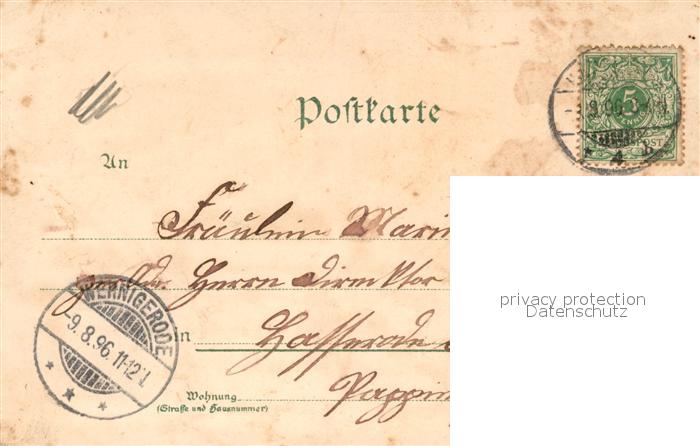 Postkarte
5
4
An
Fräulein Marie
Herrn Direktor
in Hasserode
Wohnung
(Straße und Hausnummer)
WERNIGERODE
9.8.96. 11-12
privacy protection
Datenschutz